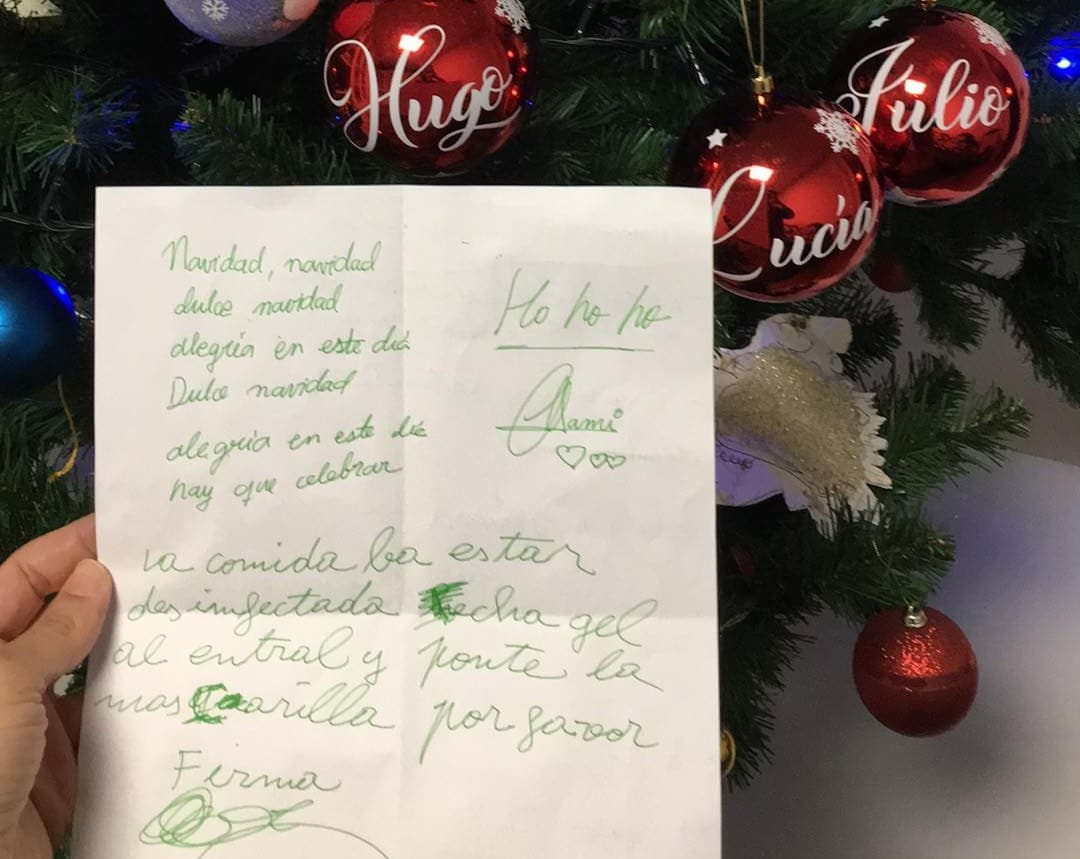 Hugo
Julio
Lucía
Navidad, navidad
dulce navidad
alegria en este dia
Dulce navidad
alegria en este dia
hay que celebrar
Ho ho ho
Mami
la comida ba estar
desimfectada echa gel
al entral y ponte la
mascarilla por favor
Firma